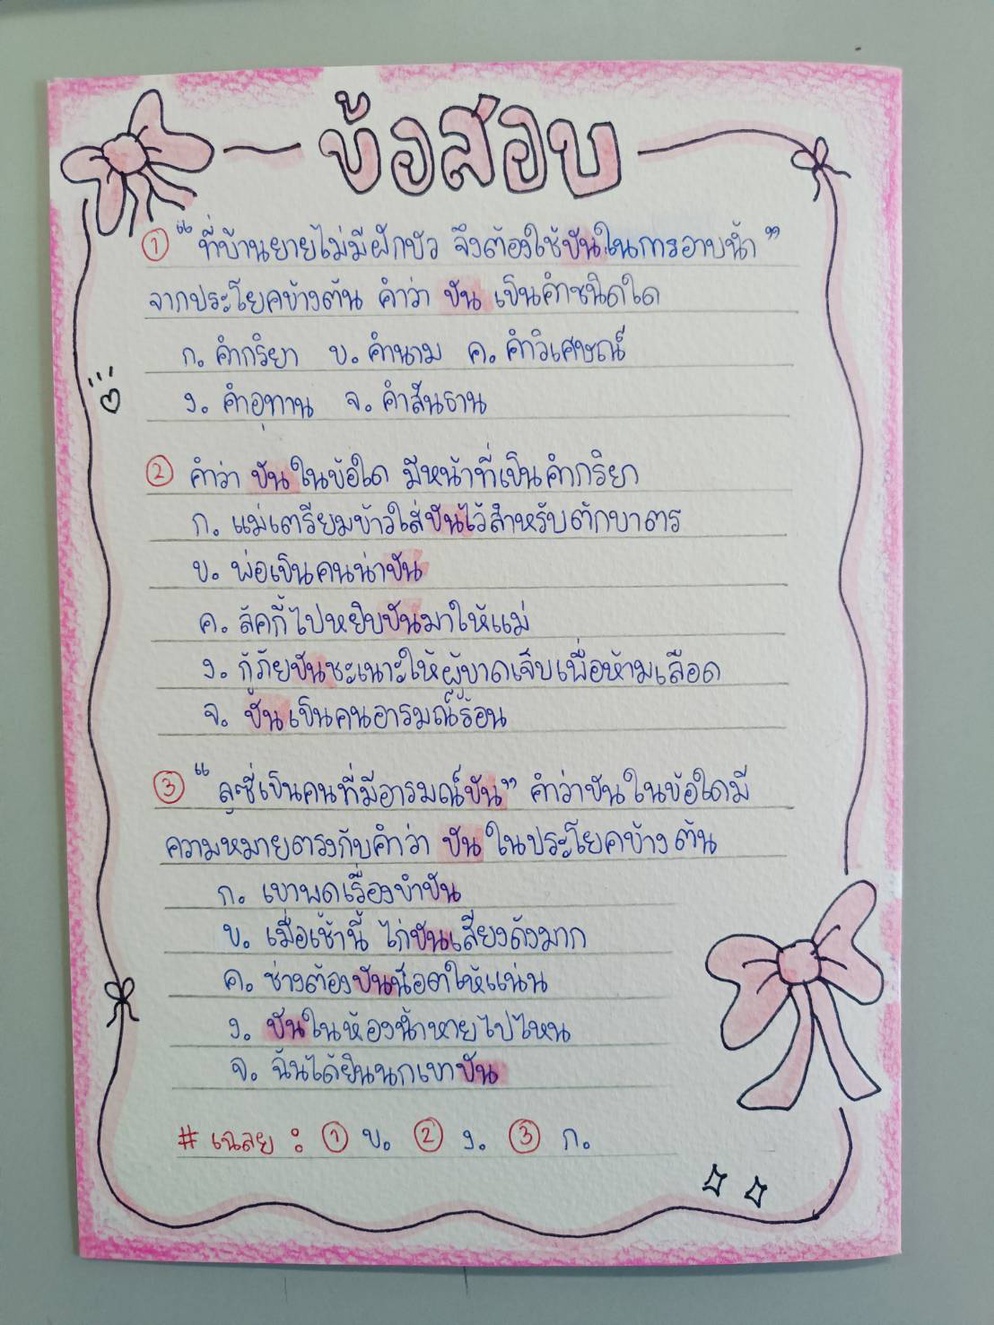 ข้อสอบ
① "ที่บ้านยายไม่มีฝักบัว จึงต้องใช้ขันในการอาบน้ำ"
จากประโยคข้างต้น คำว่า ขัน เป็นคำชนิดใด
ก. คำกริยา ข. คำนาม ค. คำวิเศษณ์
ง. คำอุทาน จ. คำสันธาน
② คำว่า ขัน ในข้อใด มีหน้าที่เป็นคำกริยา
ก. แม่เตรียมข้าวใส่ขันไว้สำหรับตักบาตร
ข. พ่อเป็นคนน่าขัน
ค. ลัคกี้ไปหยิบขันมาให้แม่
ง. กู้ภัยขันชะเนาะให้ผู้บาดเจ็บเพื่อห้ามเลือด
จ. ขันเป็นคนอารมณ์ร้อน
③ "ลูซี่เป็นคนที่มีอารมณ์ขัน" คำว่าขันในข้อใดมี
ความหมายตรงกับคำว่า ขัน ในประโยคข้างต้น
ก. เขาพูดเรื่องขำขัน
ข. เมื่อเช้านี้ ไก่ขันเสียงดังมาก
ค. ช่างต้องขันน็อตให้แน่น
ง. ขันในห้องน้ำหายไปไหน
จ. ฉันได้ยินนกเขาขัน
# เฉลย : ① ข. ② ง. ③ ก.